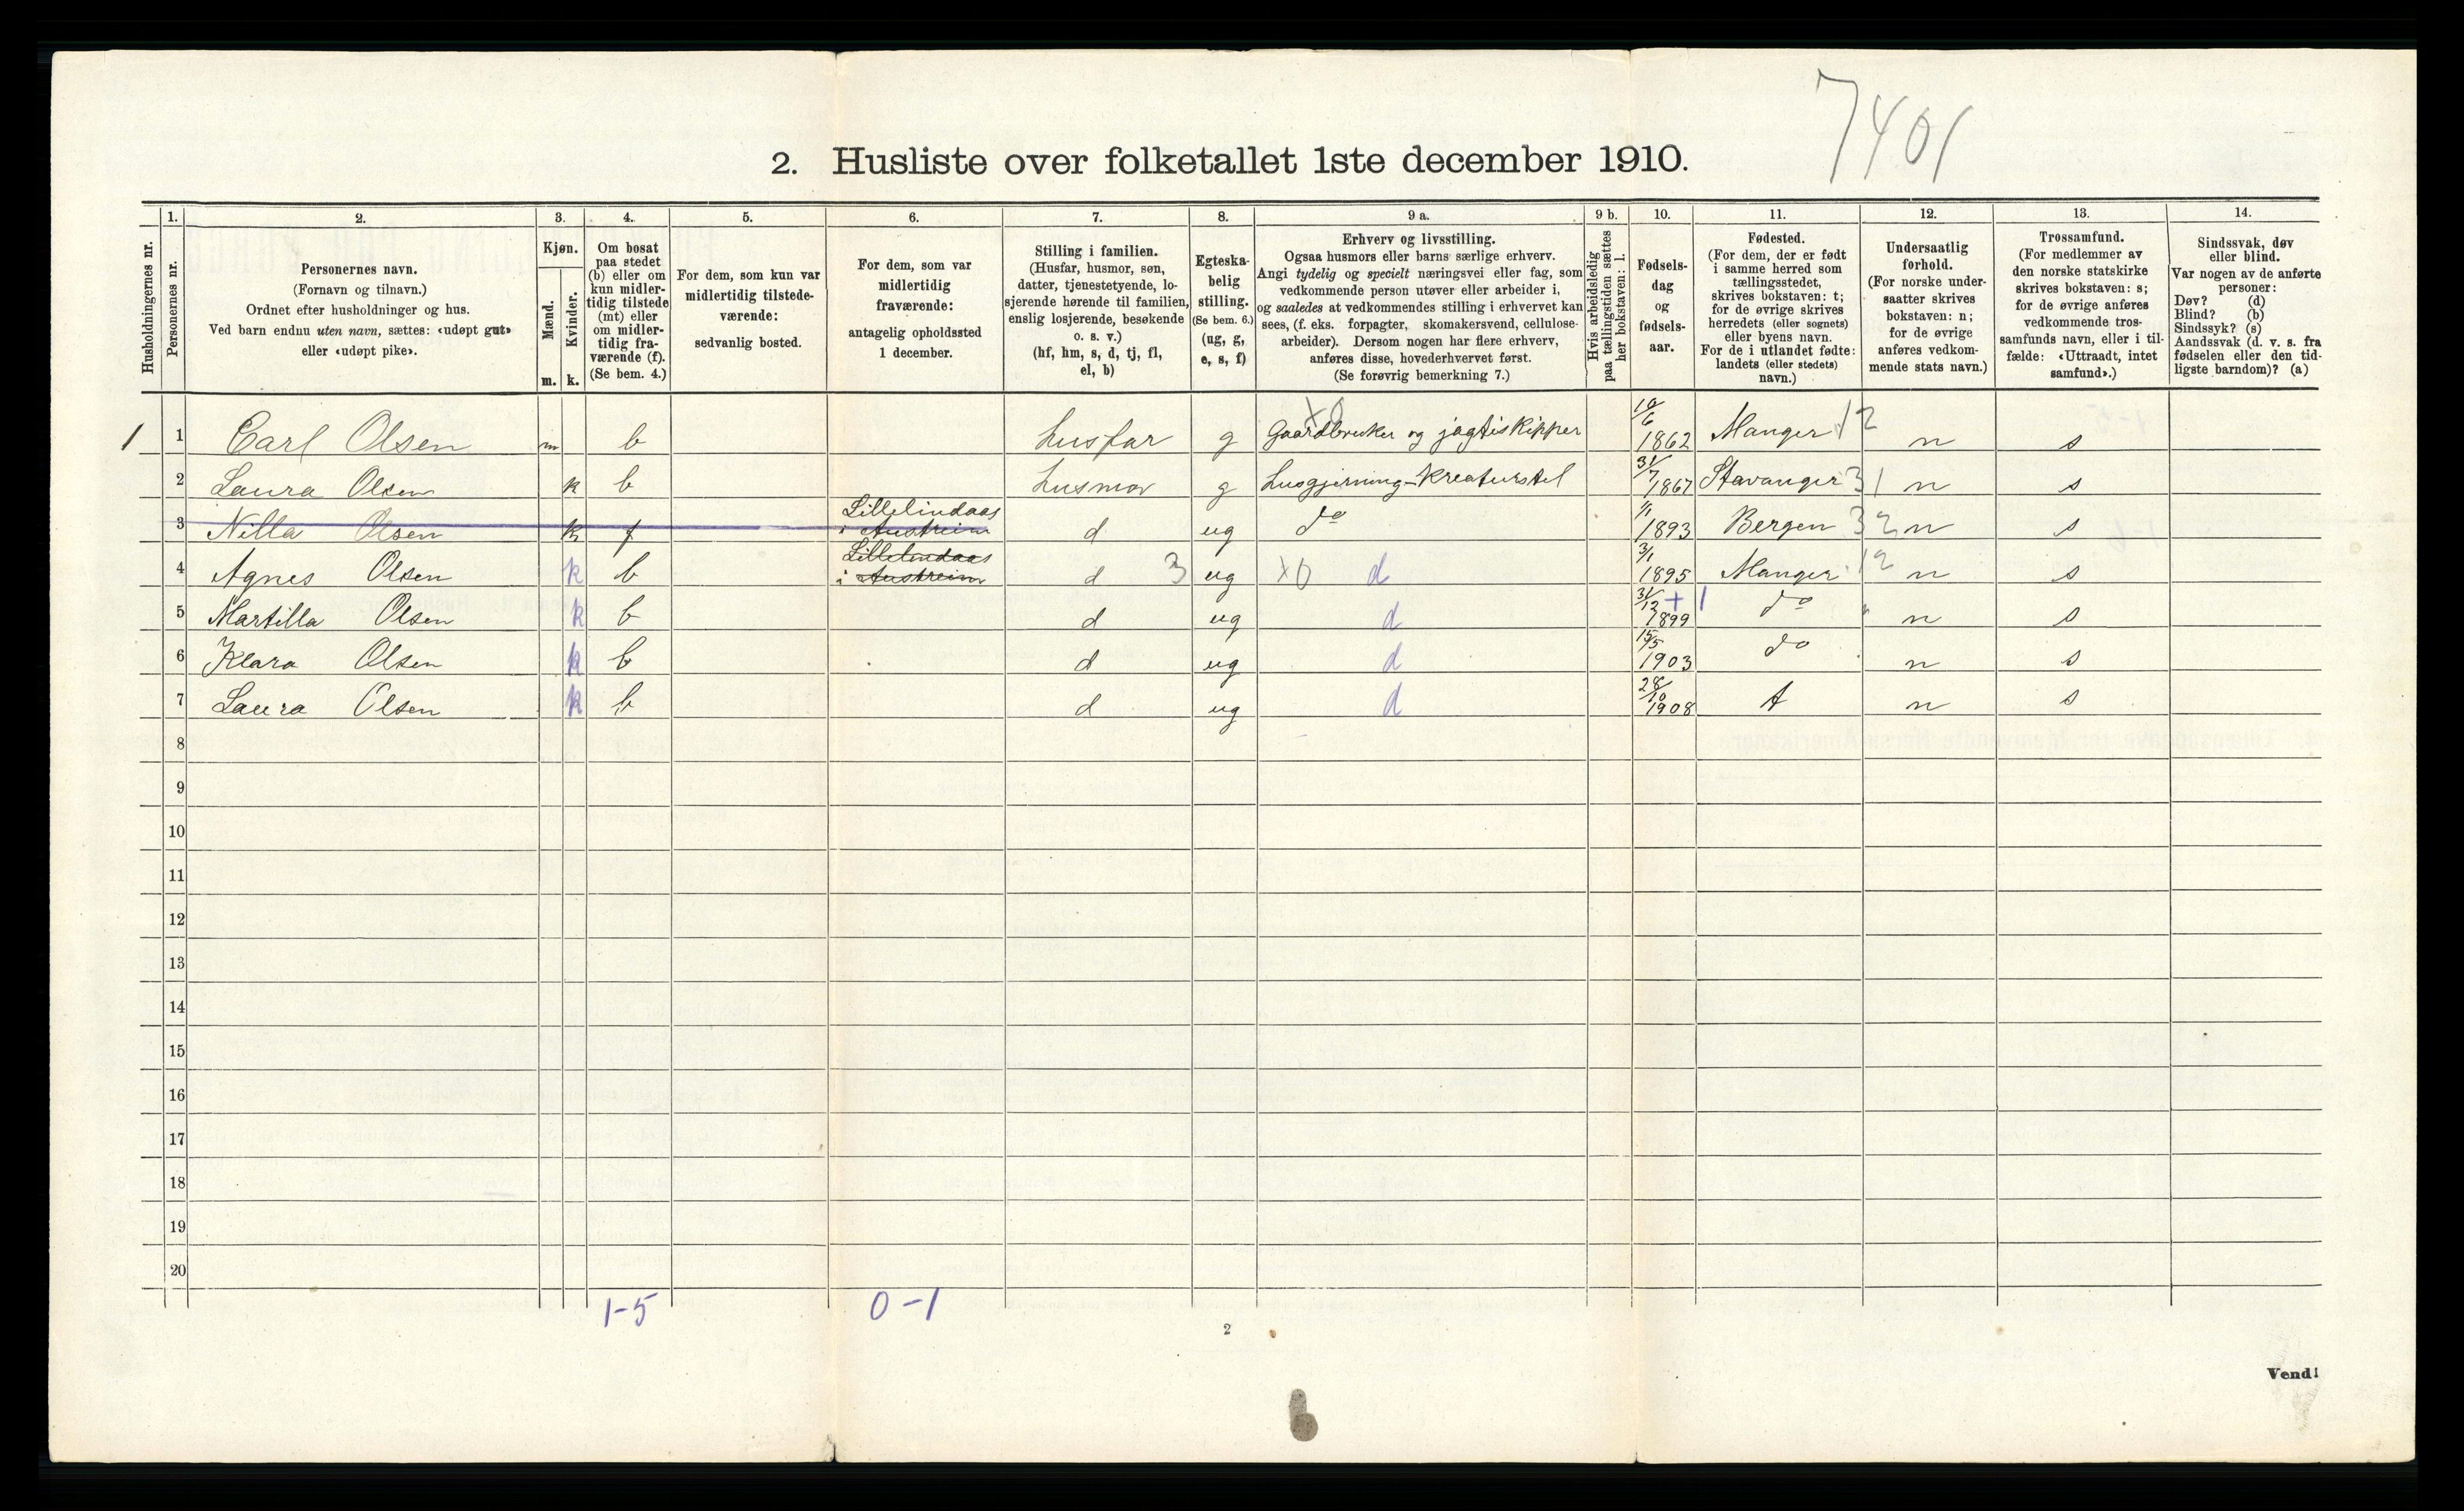 7401
2. Husliste over folketallet 1ste december 1910.
Husholdningernes nr.
1.
Personernes nr.
2.
Personernes navn.
(Fornavn og tilnavn.)
Ordnet efter husholdninger og hus.
Ved barn endnu uten navn, sættes: «udøpt gut»
eller «udøpt pike».
3.
Kjøn.
Mænd.
Kvinder.
m. k.
4.
Om bosat
paa stedet
(b) eller om
kun midler-
tidig tilstede
(mt) eller
om midler-
tidig fra-
værende (f).
(Se bem. 4.)
5.
For dem, som kun var
midlertidig tilstede-
værende:
sedvanlig bosted.
6.
For dem, som var
midlertidig
fraværende:
antagelig opholdssted
1 december.
7.
Stilling i familien.
(Husfar, husmor, søn,
datter, tjenestetyende, lo-
sjerende hørende til familien,
enslig losjerende, besøkende
o. s. v.)
(hf, hm, s, d, tj, fl,
el, b)
8.
Egteska-
belig
stilling.
(Se bem. 6.)
(ug, g,
e, s, f)
9 a.
Erhverv og livsstilling.
Ogsaa husmors eller barns særlige erhverv.
Angi tydelig og specielt næringsvei eller fag, som
vedkommende person utøver eller arbeider i,
og saaledes at vedkommendes stilling i erhvervet kan
sees, (f. eks. forpagter, skomakersvend, cellulose-
arbeider). Dersom nogen har flere erhverv,
anføres disse, hovederhvervet først.
(Se forøvrig bemerkning 7.)
9 b.
Hvis arbeidsledig
paa tællingstiden sættes
her bokstaven: l.
10.
Fødsels-
dag
og
fødsels-
aar.
11.
Fødested.
(For dem, der er født
i samme herred som
tællingsstedet,
skrives bokstaven: t;
for de øvrige skrives
herredets (eller sognets)
eller byens navn.
For de i utlandet fødte:
landets (eller stedets)
navn.)
12.
Undersaatlig
forhold.
(For norske under-
saatter skrives
bokstaven: n;
for de øvrige
anføres vedkom-
mende stats navn.)
13.
Trossamfund.
(For medlemmer av
den norske statskirke
skrives bokstaven: s;
for de øvrige anføres
vedkommende tros-
samfunds navn, eller i til-
fælde: «Uttraadt, intet
samfund».)
14.
Sindssvak, døv
eller blind.
Var nogen av de anførte
personer:
Døv? (d)
Blind? (b)
Sindssyk? (s)
Aandssvak (d. v. s. fra
fødselen eller den tid-
ligste barndom)? (a)
1 1 Carl Olsen m b husfar g Gaardbruker og jagtskipper x0 10/6 1862 Manger 12 n s
2 Laura Olsen k b husmor g husgjerning - kreaturstel 31/7 1867 Stavanger 31 n s
3 Nilla Olsen k f Lillelindaas i Austreim d ug do 1/1 1893 Bergen 32 n s
4 Agnes Olsen k b Lillelindaas i Austreim d 3 ug x0 d 3/1 1895 Manger 12 n s
5 Martilla Olsen k b d ug d 31/12 1899 + 1 do n s
6 Klara Olsen k b d ug d 15/5 1903 do n s
7 Laura Olsen k b d ug d 28/10 1908 t n s
8
9
10
11
12
13
14
15
16
17
18
19
20
1-5 0-1
2
Vend!